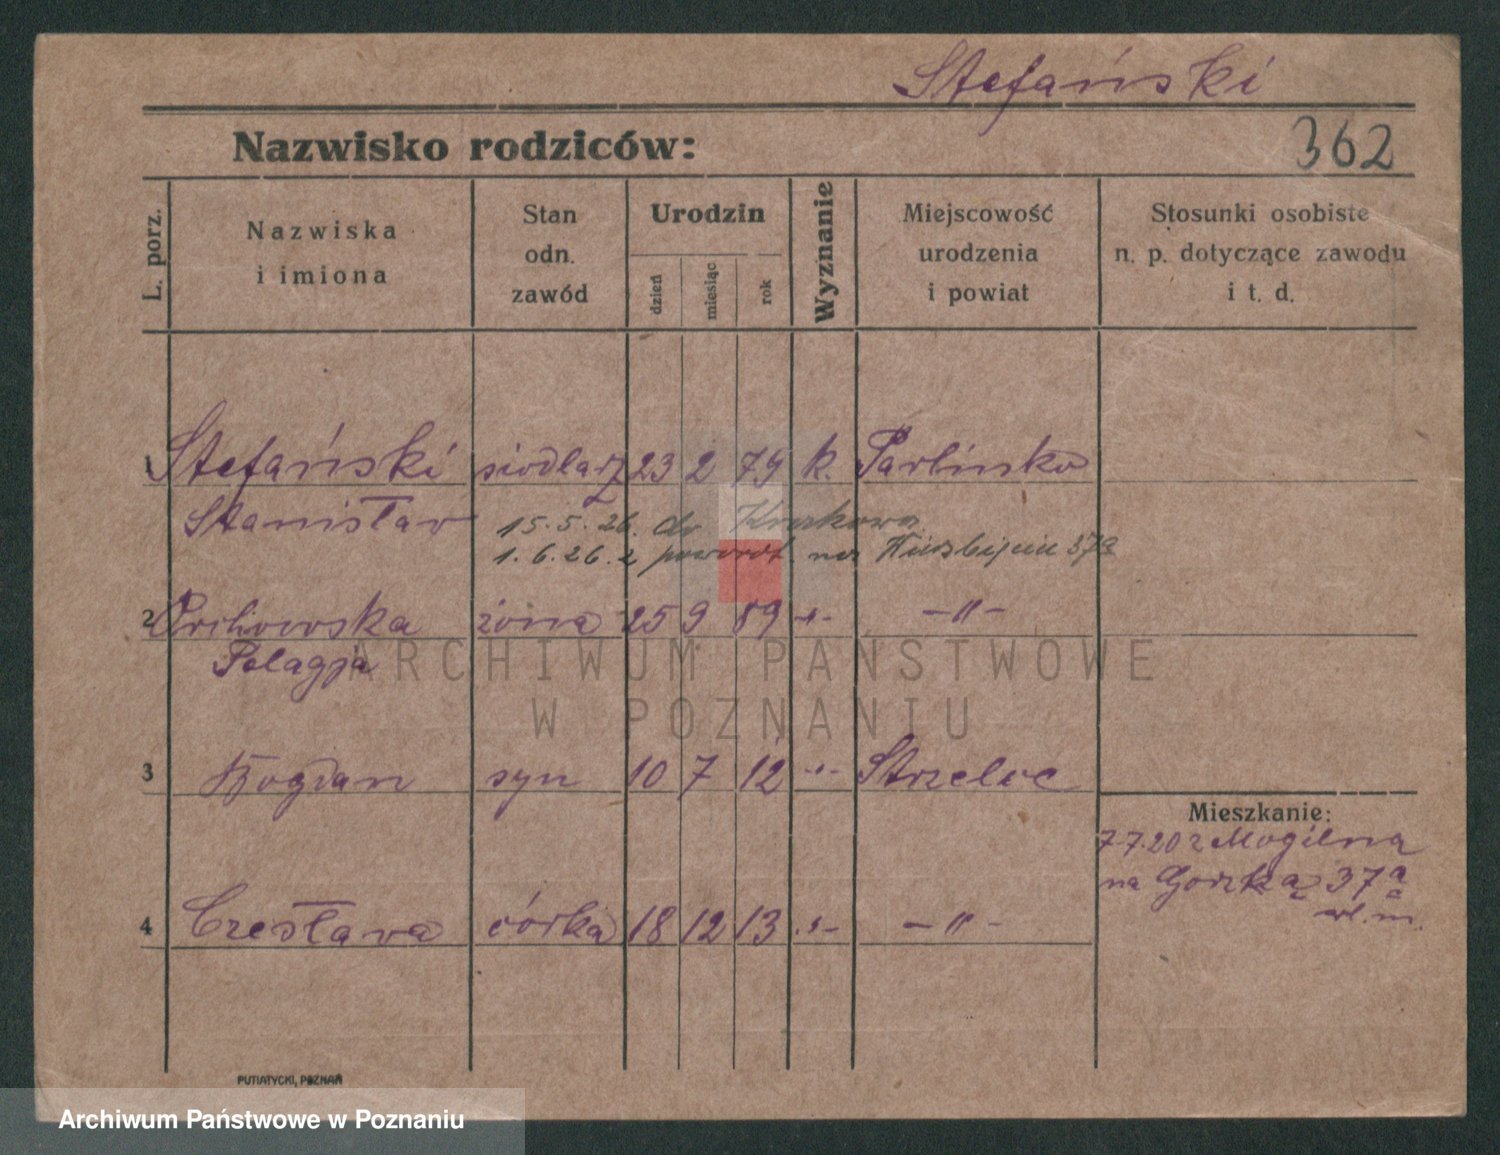 Stefański
Nazwisko rodziców:
362
L. porz.
Nazwiska
i imiona
Stan
odn.
zawód
Urodzin
dzień
miesiąc
rok
Wyznanie
Miejscowość
urodzenia
i powiat
Stosunki osobiste
n. p. dotyczące zawodu
i t. d.
1 Stefański siodlarz 23 2 79 k. Parlinko
Stanisław
15.5.26. do Krakowa
1.6.26. z powrot. na 37a
2 żona 25 9 89 -"- -"-
Pelagja
ARCHIWUM PAŃSTWOWE
W POZNANIU
3 Bogdan syn 10 7 12 -"- Strzelce
Mieszkanie:
7.7.20 z Mogilna
na 37a
4 Czesława córka 18 12 13 -"- -"-
PUTIATYCKI, POZNAŃ
Archiwum Państwowe w Poznaniu